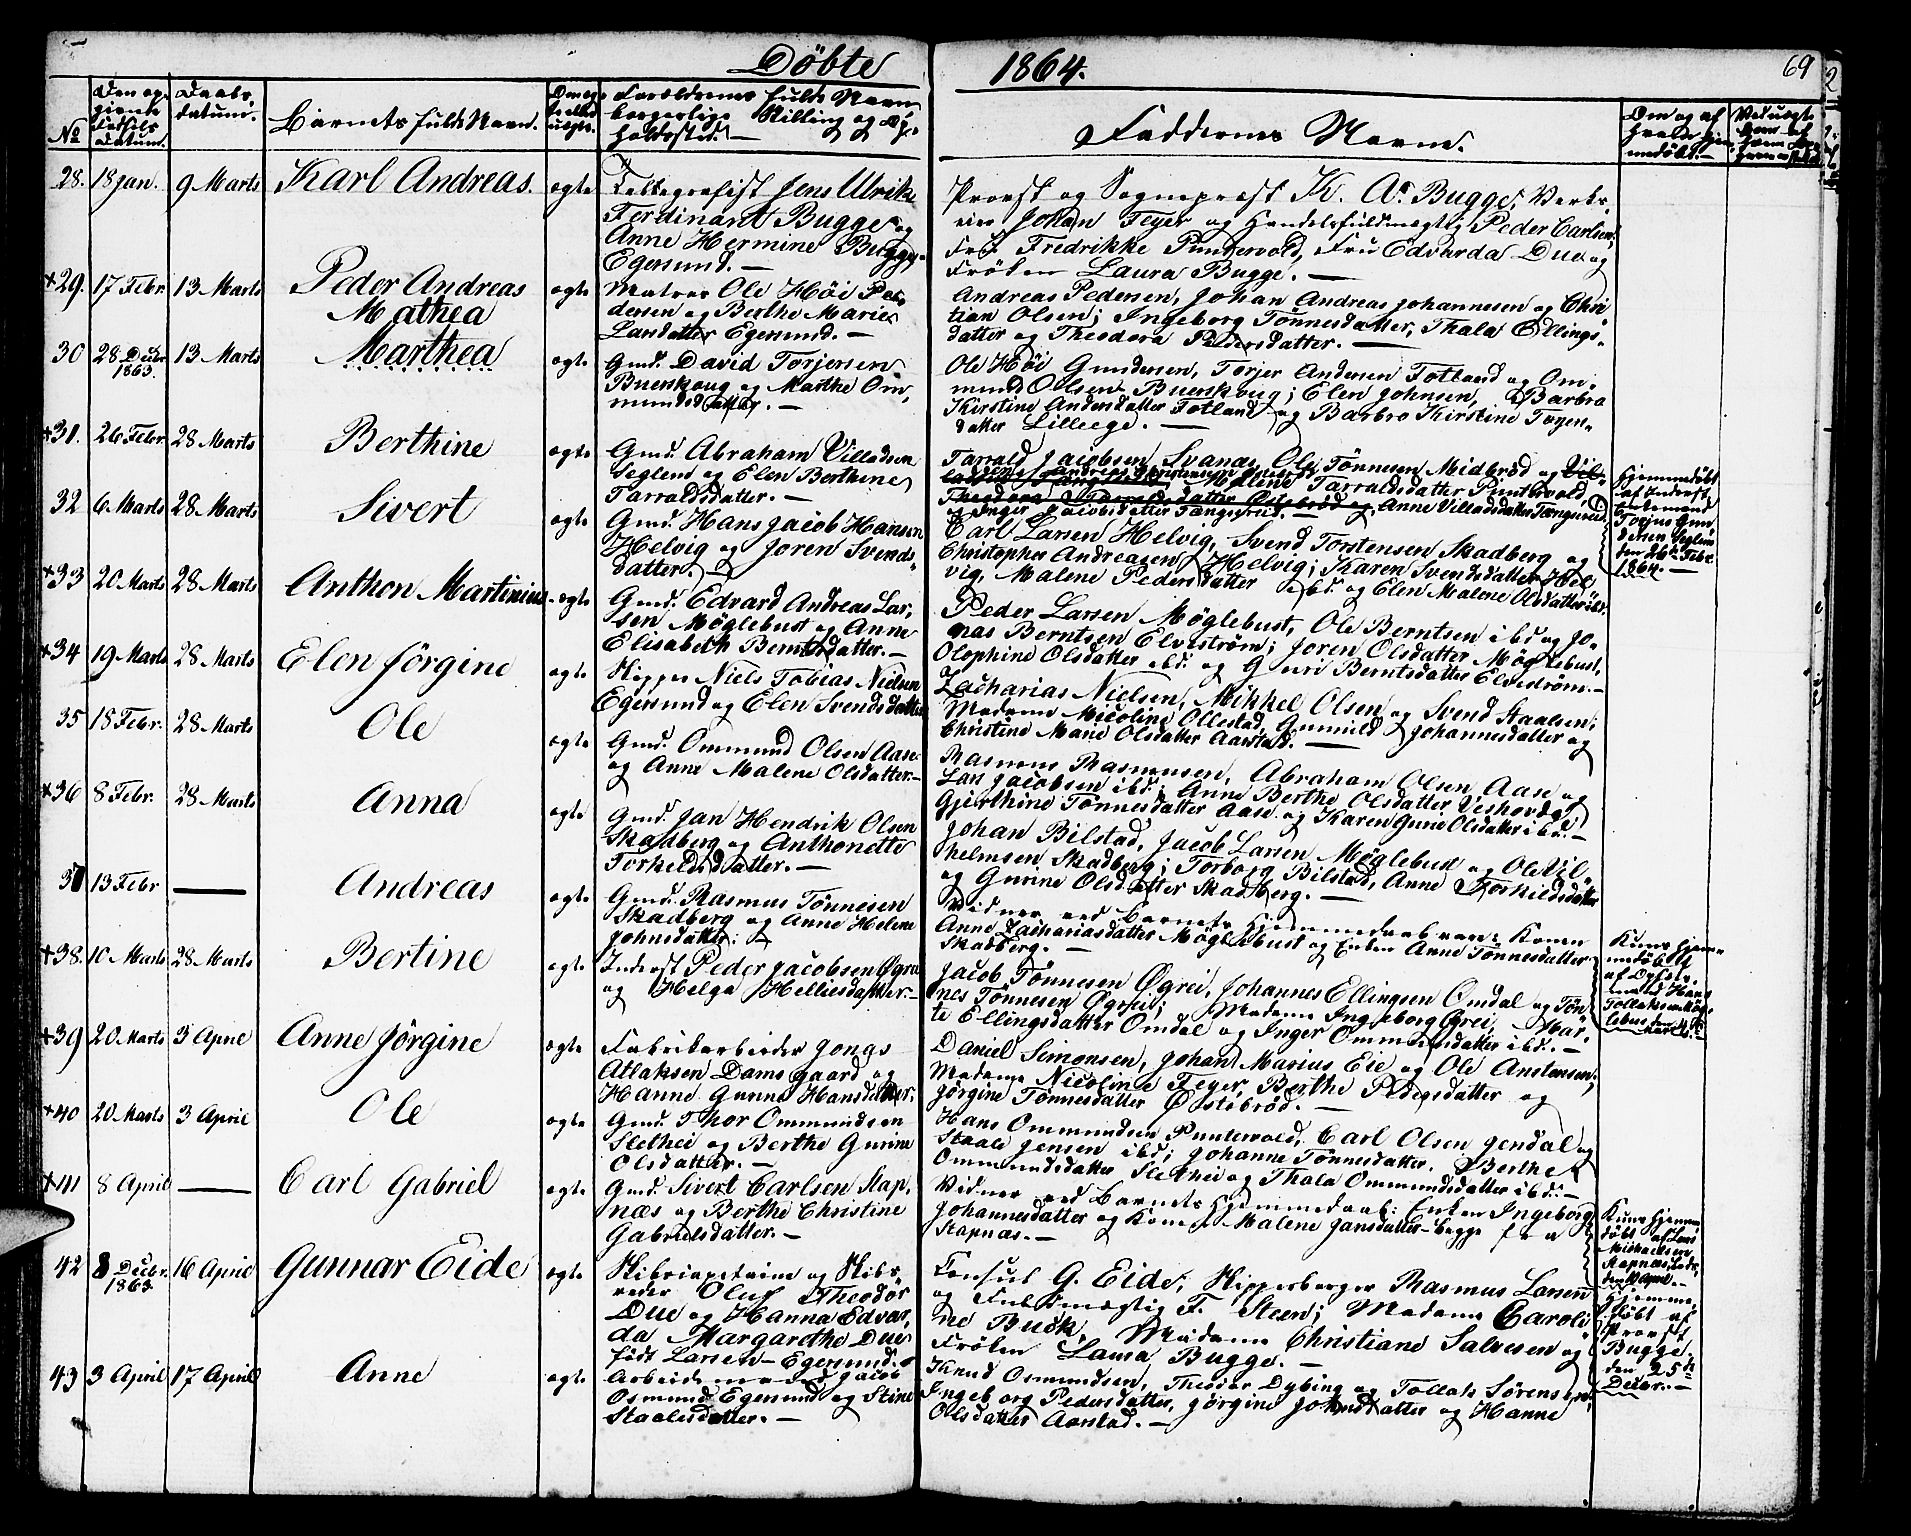 Döbte 1864. 69
No
Den op-
givne
Fødsels
datum.
Daabs-
datum.
Barnets fulde Navn.
Forældrenes fulde Navn
borgerlige Stilling og Op-
holdssted.
Faddernes Navne.
28. 18 Jan. 9 Marts Karl Andreas. ægte
Tellegrafist Jens Ulrik
Ferdinant Bugge og
Anne Hermine Bugge
Egersund. —
Provst og Sognepræst K. As Bugge,
Johan Feyer og Handelsfuldmægtig Peder Carlsen;
Fru Fredrikke Puntervold, Fru Edvarda Due og
Fröken Laura Bugge. —
+29. 17 Febr. 13 Marts Peder Andreas
Mathea ægte
Matros Ole Höi Pe-
dersen og Berthe Marie
Larsdatter Egersund. —
Andreas Pedersen, Johan Andreas Johannesen og Chri-
stian Olsen; Ingeborg Tönnesdatter, Thala Ellings-
datter og Theodora Pedersdatter. —
30 28 Decbr 1863. 13 Marts Marthea ægte
Gmd. David Torjersen
Buerskoug og Marthe Om-
mundsdatter. —
Ole Höi Gundersen, Torjer Andersen Totland og Om-
mund Olsen Buerskoug; Elen Johnsen, Barbro
Kirstine Andersdatter Totland og Barbro Kirstine Torjers-
datter Lilleege. —
+31. 26 Febr 28 Marts Berthine ægte
Gmd. Abraham Villadsen
Seglem og Elen Berthine
Tarraldsdatter. —
Tarrald Jacobsen Svanæs, Ole Tönnesen Midbröd og
Malene Tarraldsdatter Puntervold,
Anne Villadsdatter Tengesreid
og Inger Jacobsdatter Tengsreid. —
Hjemmedöbt
af Inderst
Torjus Gun-
dersen Seglem
den 26de Febr
1864. —
32 6 Marts 28 Marts Sivert ægte
Gmd. Hans Jacob Hansen
Helvig og Joren Svends-
datter. —
Carl Larsen Helvig, Svend Torstensen Skadberg og
Christopher Andreasen Helvig; Karen Svendsdatter Hel-
vig, Malene Pedersdatter ibd. og Elen Malene Olsdatter ibd.
+33 20 Marts 28 Marts Anthon Martinius ægte
Gmd. Edvard Andreas Lar-
sen Möglebust og Anne
Elisabeth Berntsdatter. —
Peder Larsen Möglebust, Ole Berntsen ibd og Jo-
nas Berntsen Elveström; Joren Olsdatter Möglebust,
Olephine Olsdatter ibd. og Guri Berntsdatter Elveström. —
+34 19 Marts 28 Marts Elen Jörgine ægte
Skipper Niels Tobias Nielsen
Egersund og Elen Svendsdatter
Zacharias Nielsen, Mikkel Olsen og Svend Staalsen;
Madame Nicoline Ollestad, Gunnild Johannesdatter og
Christine Marie Olsdatter Aarstad. —
35 18 Febr. 28 Marts Ole ægte
Gmd. Ommund Olsen Aase
og Anne Malene Olsdatter. —
Rasmus Rasmussen, Abraham Olsen Aase og
Lars Jacobsen ibd; Anne Berthe Olsdatter
Gjerthine Tönnesdatter Aase og Karen Gurine Olsdatter ibd. —
+36 8 Febr. 28 Marts Anna ægte
Gmd. Jan Hendrik Olsen
Skadberg og Anthonette
Torkeldsdatter. —
Johan Bilstad, Jacob Larsen Möglebust og Ole Vil-
helmsen Skadberg; Torborg Bilstad, Anne Torkildsdatter
og Gurine Olsdatter Skadberg. —
37 13 Febr — Andreas ægte
Gmd. Rasmus Tönnesen
Skadberg og Anne Helene
Johnsdatter: —
Vidner ved Barnets Hjemmedaab vare: Konen
Anne Zachariasdatter Möglebust og Enken Anne Tönnesdatter
Skadberg. —
Kun hjem-
medöbt
Hans
Tollaksen Mög-
lebust den
+38. 10 Marts 28 Marts Bertine ægte
Inderst Peder Jacobsen Øgrei
og Helga Helliesdatter. —
Jacob Tönnesen Øgrei, Johannes Ellingsen Omdal og Tön-
nes Tönnesen Øgrei; Madame Ingeborg Øgrei, Mar-
te Ellingsdatter Omdal og Inger Ommundsdatter ibd. —
+39 20 Marts 3 April Anne Jörgine ægte
Fabrikarbeider Jonas
Atlaksen Damsgaard og
Hanne Gunne Hansdatter.
Daniel Simonsen, Johan Marius Eie og Ole Anstensen;
Madame Nicoline Feyer, Berthe Pedersdatter og
Jörgine Tönnesdatter Östebröd. —
+40 20 Marts 3 April Ole ægte
Gmd. Thor Ommundsen
Slethei og Berthe Gurine
Olsdatter. —
Hans Ommundsen Puntervold, Carl Olsen Jendal og
Staale Jensen ibd; Johanne Tönnesdatter. Berthe
Ommundsdatter Slethei og Thala Ommundsdatter ibd. —
+41 8 April — Carl Gabriel ægte
Gmd. Sivert Carlsen Stap-
næs og Berthe Christine
Gabrielsdatter. —
Vidner ved Barnets Hjemmedaab: Enken Ingeborg
Johannesdatter og Kone Malene Jansdatter begge fra
Stapnæs. —
Kun hjemme-
döbt af Lars
Michaelsen
Stapnæs,
den 10 April —
42 8 Decbr. 1863. 16 April Gunnar Eide ægte
Skibscapitaine og Skibs-
reder Oluf Theodor
Due og Hanna Edvar-
da Margarethe Due
født Larsen — Egersund.
Consul G. Eide, Skipperborger Rasmus Larsen
og Fuldmægtig F. Steen; Madame Caroli-
ne Buck, Madame Christiane Salvesen og
Fröken Laura Bugge. —
Hjemme-
döbt af
Provst
Bugge
den 25de
Decbr. —
43 3 April 17 April Anne ægte
Arbeidsmand Jacob
Osmunds. Egersund og Stine
Staalesdatter. —
Knud Osmundsen, Theodor Dybing og Tollak Sörensen;
Ingeborg Pedersdatter, Jörgine Johnsdatter og Hanne
Olsdatter Aarstad. —